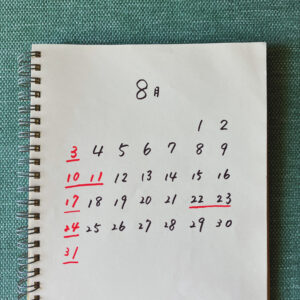 8月
1 2
3 4 5 6 7 8 9
10 11 12 13 14 15 16
17 18 19 20 21 22 23
24 25 26 27 28 29 30
31